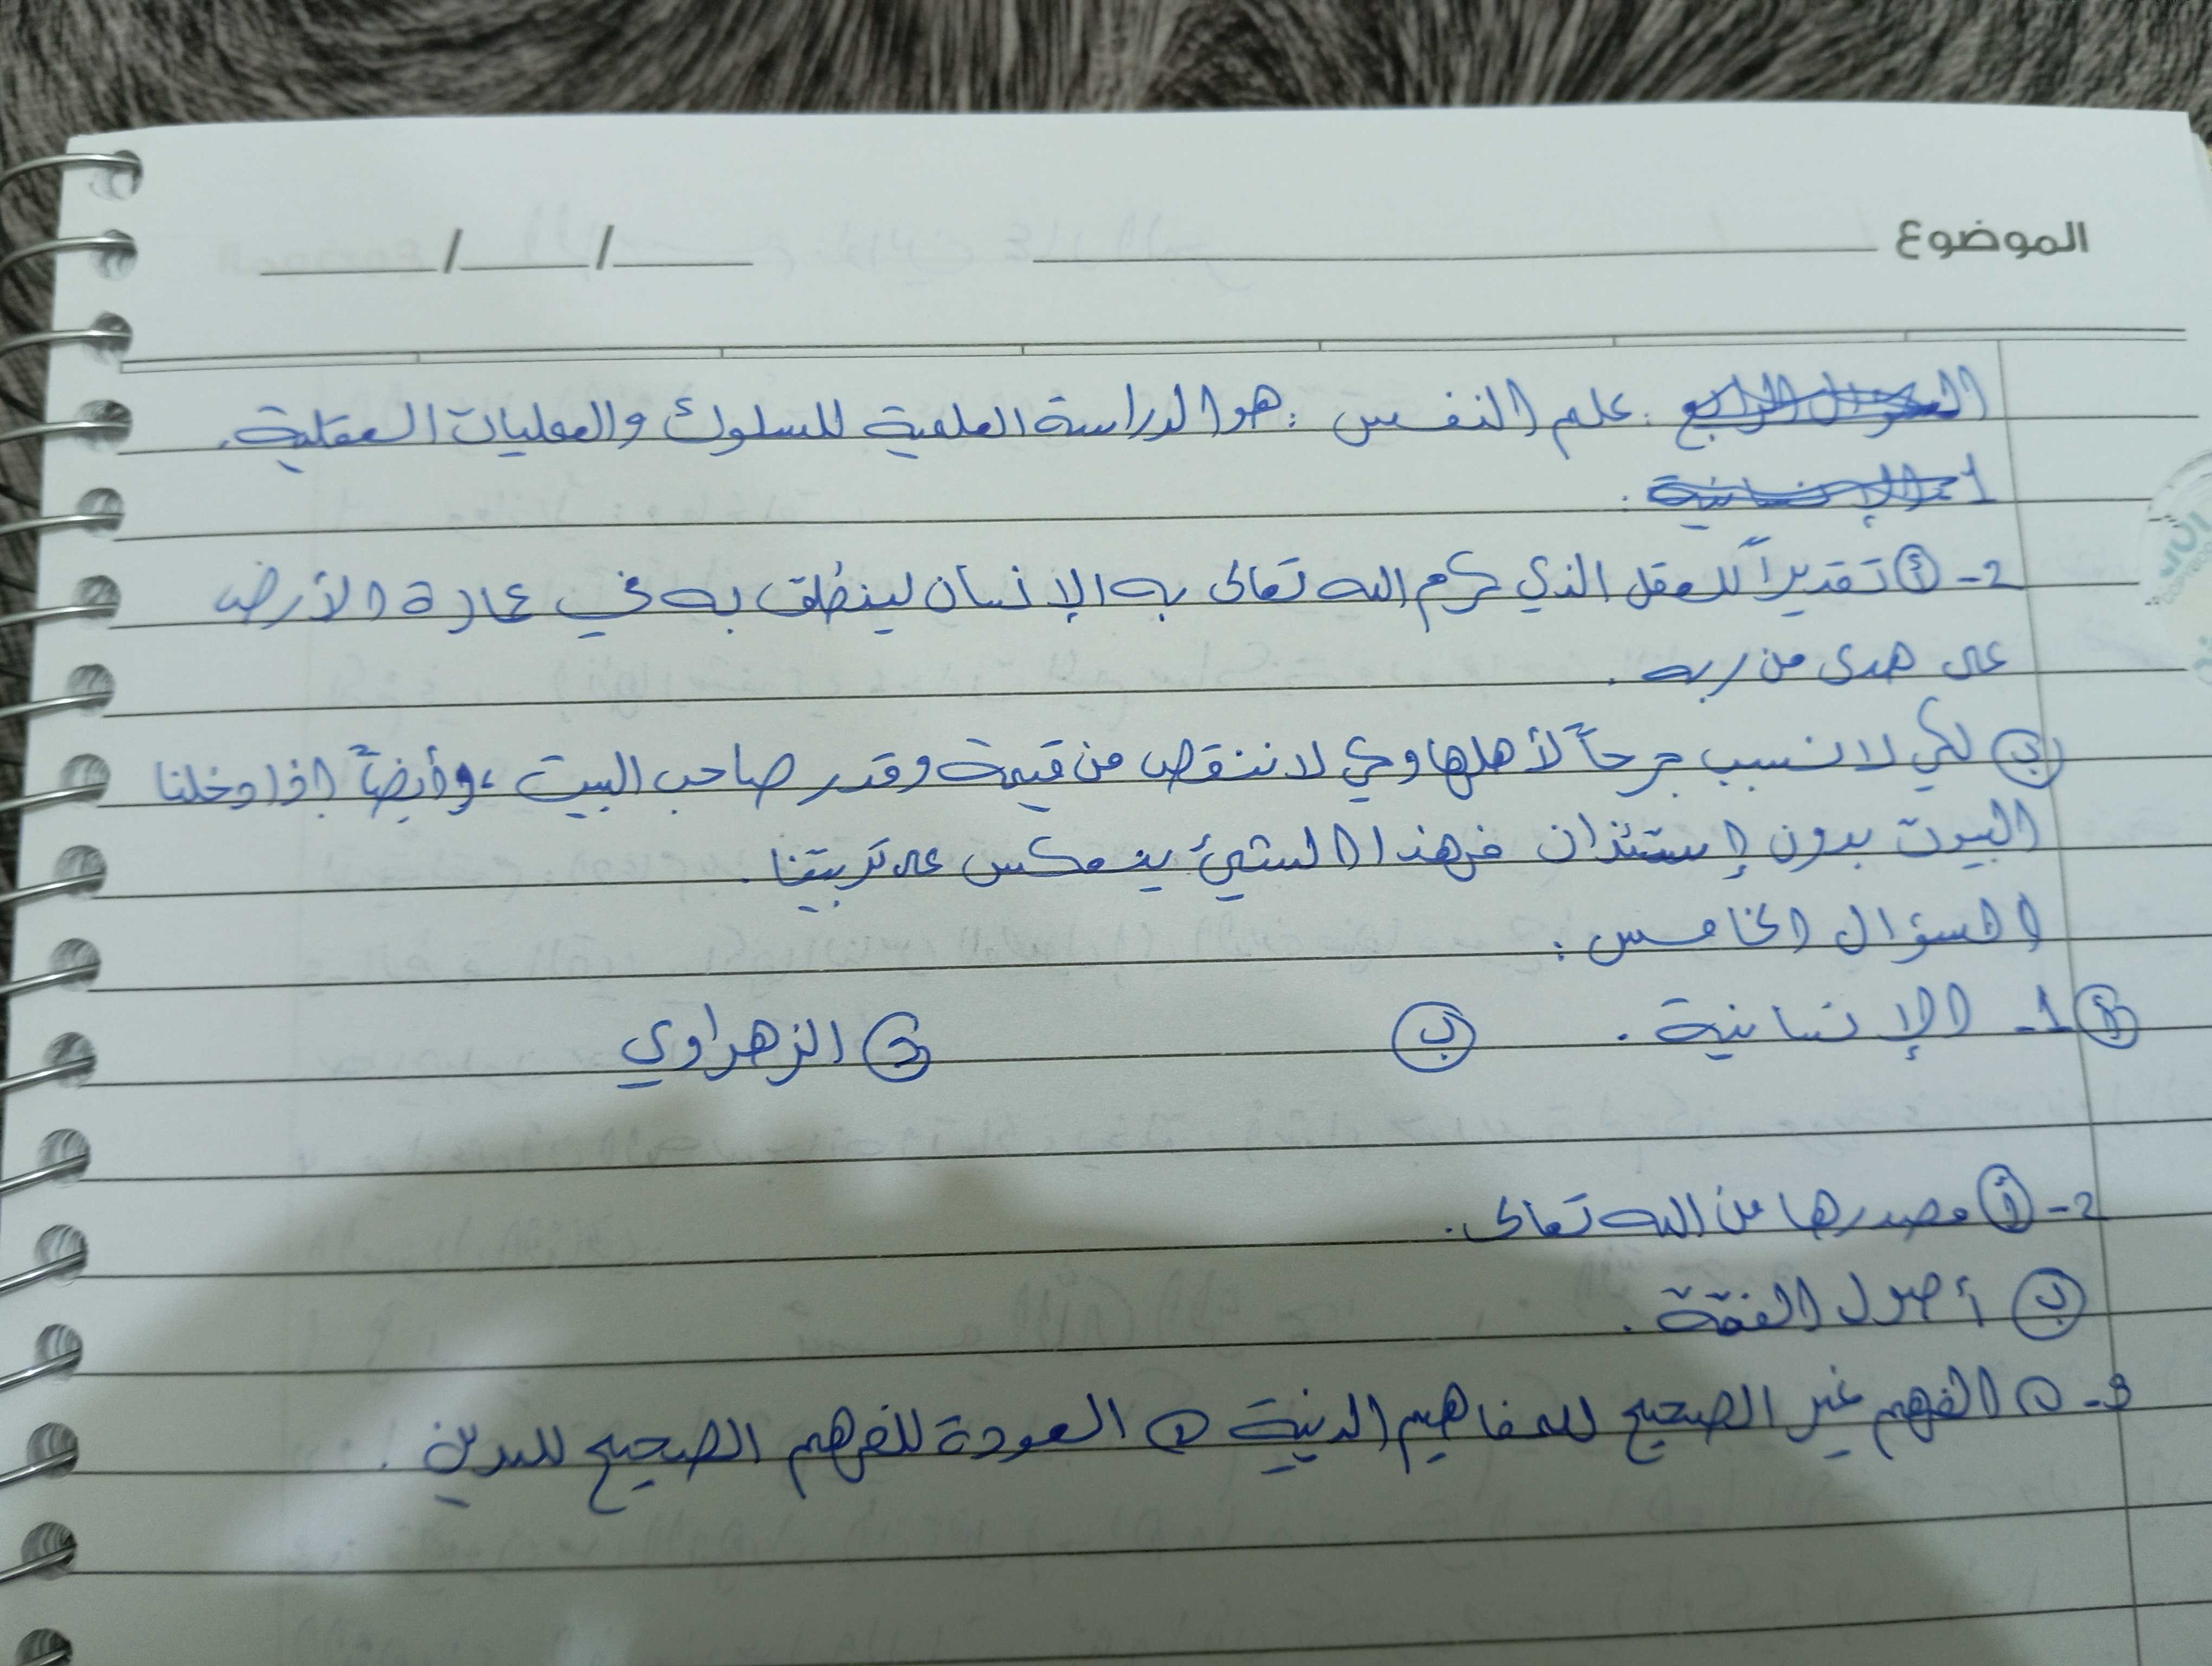 الموضوع ____ / ____ / ____
السؤال الرابع : علم النفس : هو الدراسة العلمية للسلوك والعمليات العقلية .
1- الإنسانية .
2- أ تقديراً للعقل الذي كرم الله تعالى به الإنسان لينطلق به في عمارة الأرض
على هدى من ربه .
ب لكي لا نسبب جرحاً لأهلها وكي لا ننقص من قيمة وقدر صاحب البيت ، وأيضاً إذا دخلنا
البيوت بدون إستئذان فهذا الشيئ ينعكس على تربيتنا .
السؤال الخامس :
أ 1- الإنسانية . ب ج الزهراوي
2- أ مصدرها من الله تعالى .
ب أصول الفقة .
3- 1 الفهم غير الصحيح للمفاهيم الدينية 2 العودة للفهم الصحيح للدين .